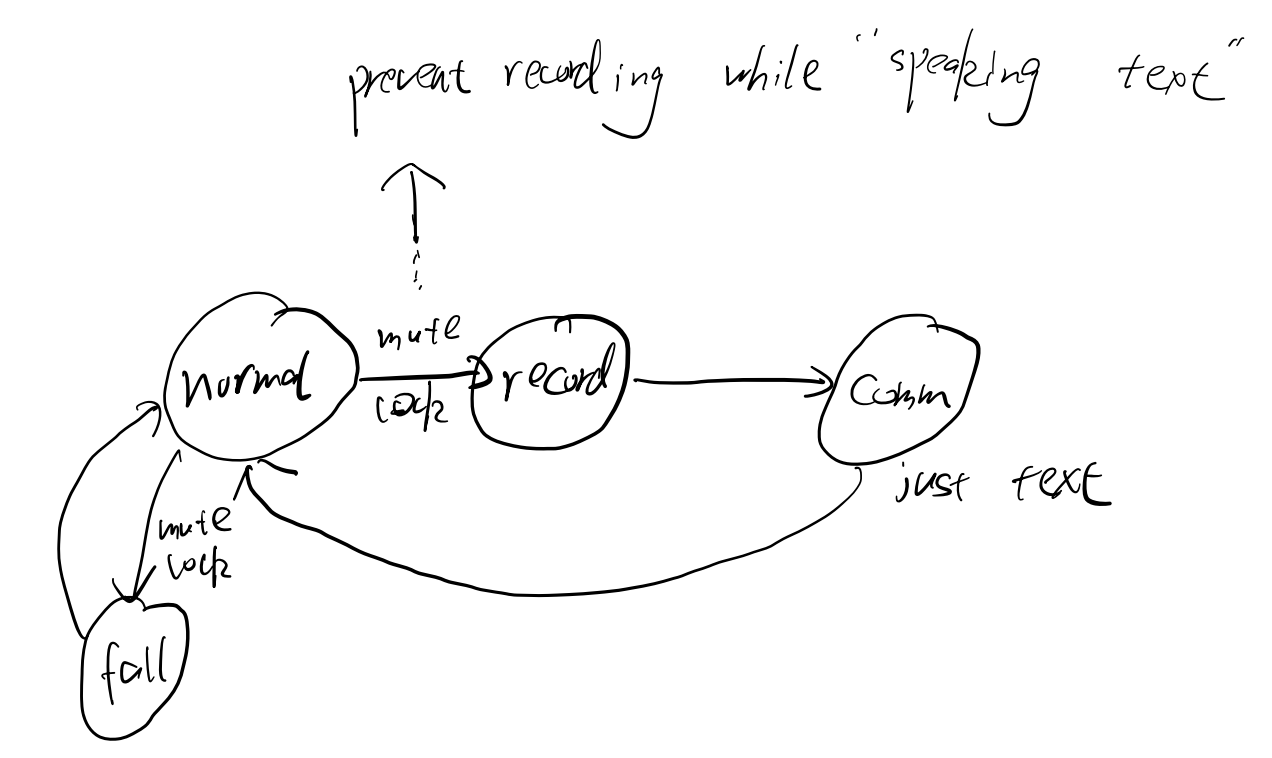 prevent recording while "speaking text"
mute
normal
lock
record
comm
just text
mute
lock
fall